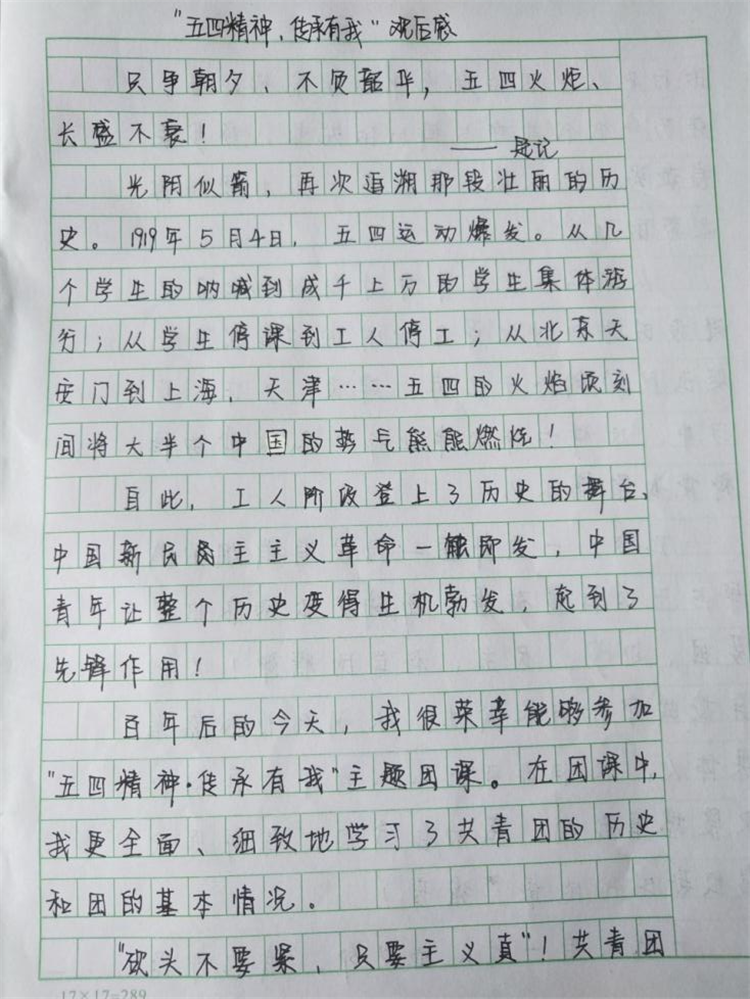 “五四精神，传承有我”观后感
只争朝夕、不负韶华，五四火炬、
长盛不衰！
——题记
光阴似箭，再次追溯那段壮丽的历
史。1919年5月4日，五四运动爆发。从几
个学生的呐喊到成千上万的学生集体游
行；从学生停课到工人停工；从北京天
安门到上海，天津……五四的火焰顷刻
间将大半个中国的势气熊熊燃烧！
自此，工人阶级登上了历史的舞台、
中国新民民主主义革命一触即发，中国
青年让整个历史变得生机勃发，起到了
先锋作用！
百年后的今天，我很荣幸能够参加
“五四精神·传承有我”主题团课。在团课中，
我更全面、细致地学习了共青团的历史
和团的基本情况。
“砍头不要紧，只要主义真”！共青团
17×17=289